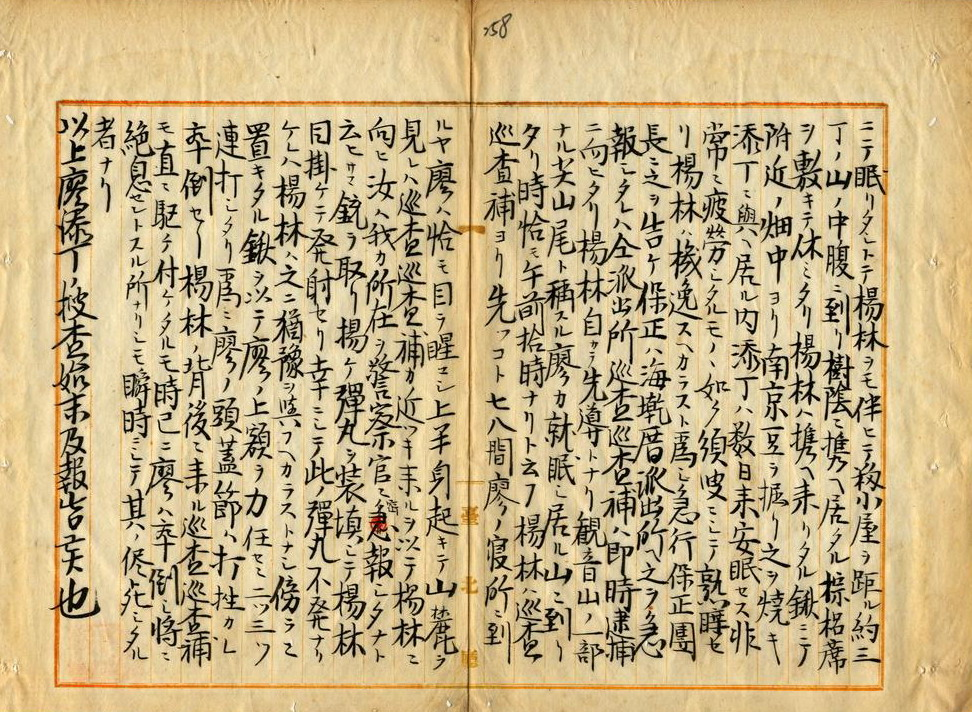 258
ニテ眠リタシトテ楊林ヲモ伴ヒテ殺小屋ヲ距ル約三
丁ノ山ノ中腹ニ到リ樹陰ニ携ヘ居タル棕梠席
ヲ敷キテ休ミタリ楊林ハ携ヘ来リタル鍬ニテ
附近ノ畑中ヨリ南京豆ヲ掘リ之ヲ焼キ
添丁ニ與ヘ居ル内添丁ハ数日来安眠セス非
常ニ疲労シタルモノヽ如ク須臾ニシテ熟睡セ
リ楊林ハ機逸スヘカラスト為シ急行保正團
長ニ之ヲ告ケ保正ハ海墘厝派出所ヘ之ヲ急
報シタレハ仝派出所巡査巡査補ハ即時逮捕
ニ向ヒタリ楊林自カラ先導トナリ観音山ノ一部
ナル尖山尾ト稱スル廖カ就眠シ居ル山ニ到リ
タリ時恰モ午前拾時ナリト云フ楊林ハ巡査
巡査補ヨリ先ツコト七八間廖ノ寝所ニ到
ルヤ廖ハ恰モ目ヲ醒シ上半身起キテ山麓ヲ
見レハ巡査巡査補カ近ツキ来ルヲ以テ楊林ニ
向ヒ汝ハ我カ所在ヲ警察官ニ密報シタナト
云ヒサマ銃ヲ取リ揚ケ彈丸ヲ装填シテ楊林
目掛ケテ発射セリ幸ニシテ此ノ彈丸不発ナリ
ケレハ楊林ハ之ニ猶豫ヲ與フヘカラストナシ傍ラニ
置キタル鍬ヲ以テ廖ノ上額ヲ力任セニ二ツ三ツ
連打シタリ為ニ廖ノ頭蓋節ハ打挫カレ
卒倒セリ楊林ノ背後ニ来ル巡査巡査補
モ直ニ駆ケ付ケタルモ時已ニ廖ハ卒倒シ将ニ
絶息セントスル所ナリシモ瞬時ニシテ其ノ侭死シタル
者ナリ
以上廖添丁ノ捜査始末及報告候也
臺北廳